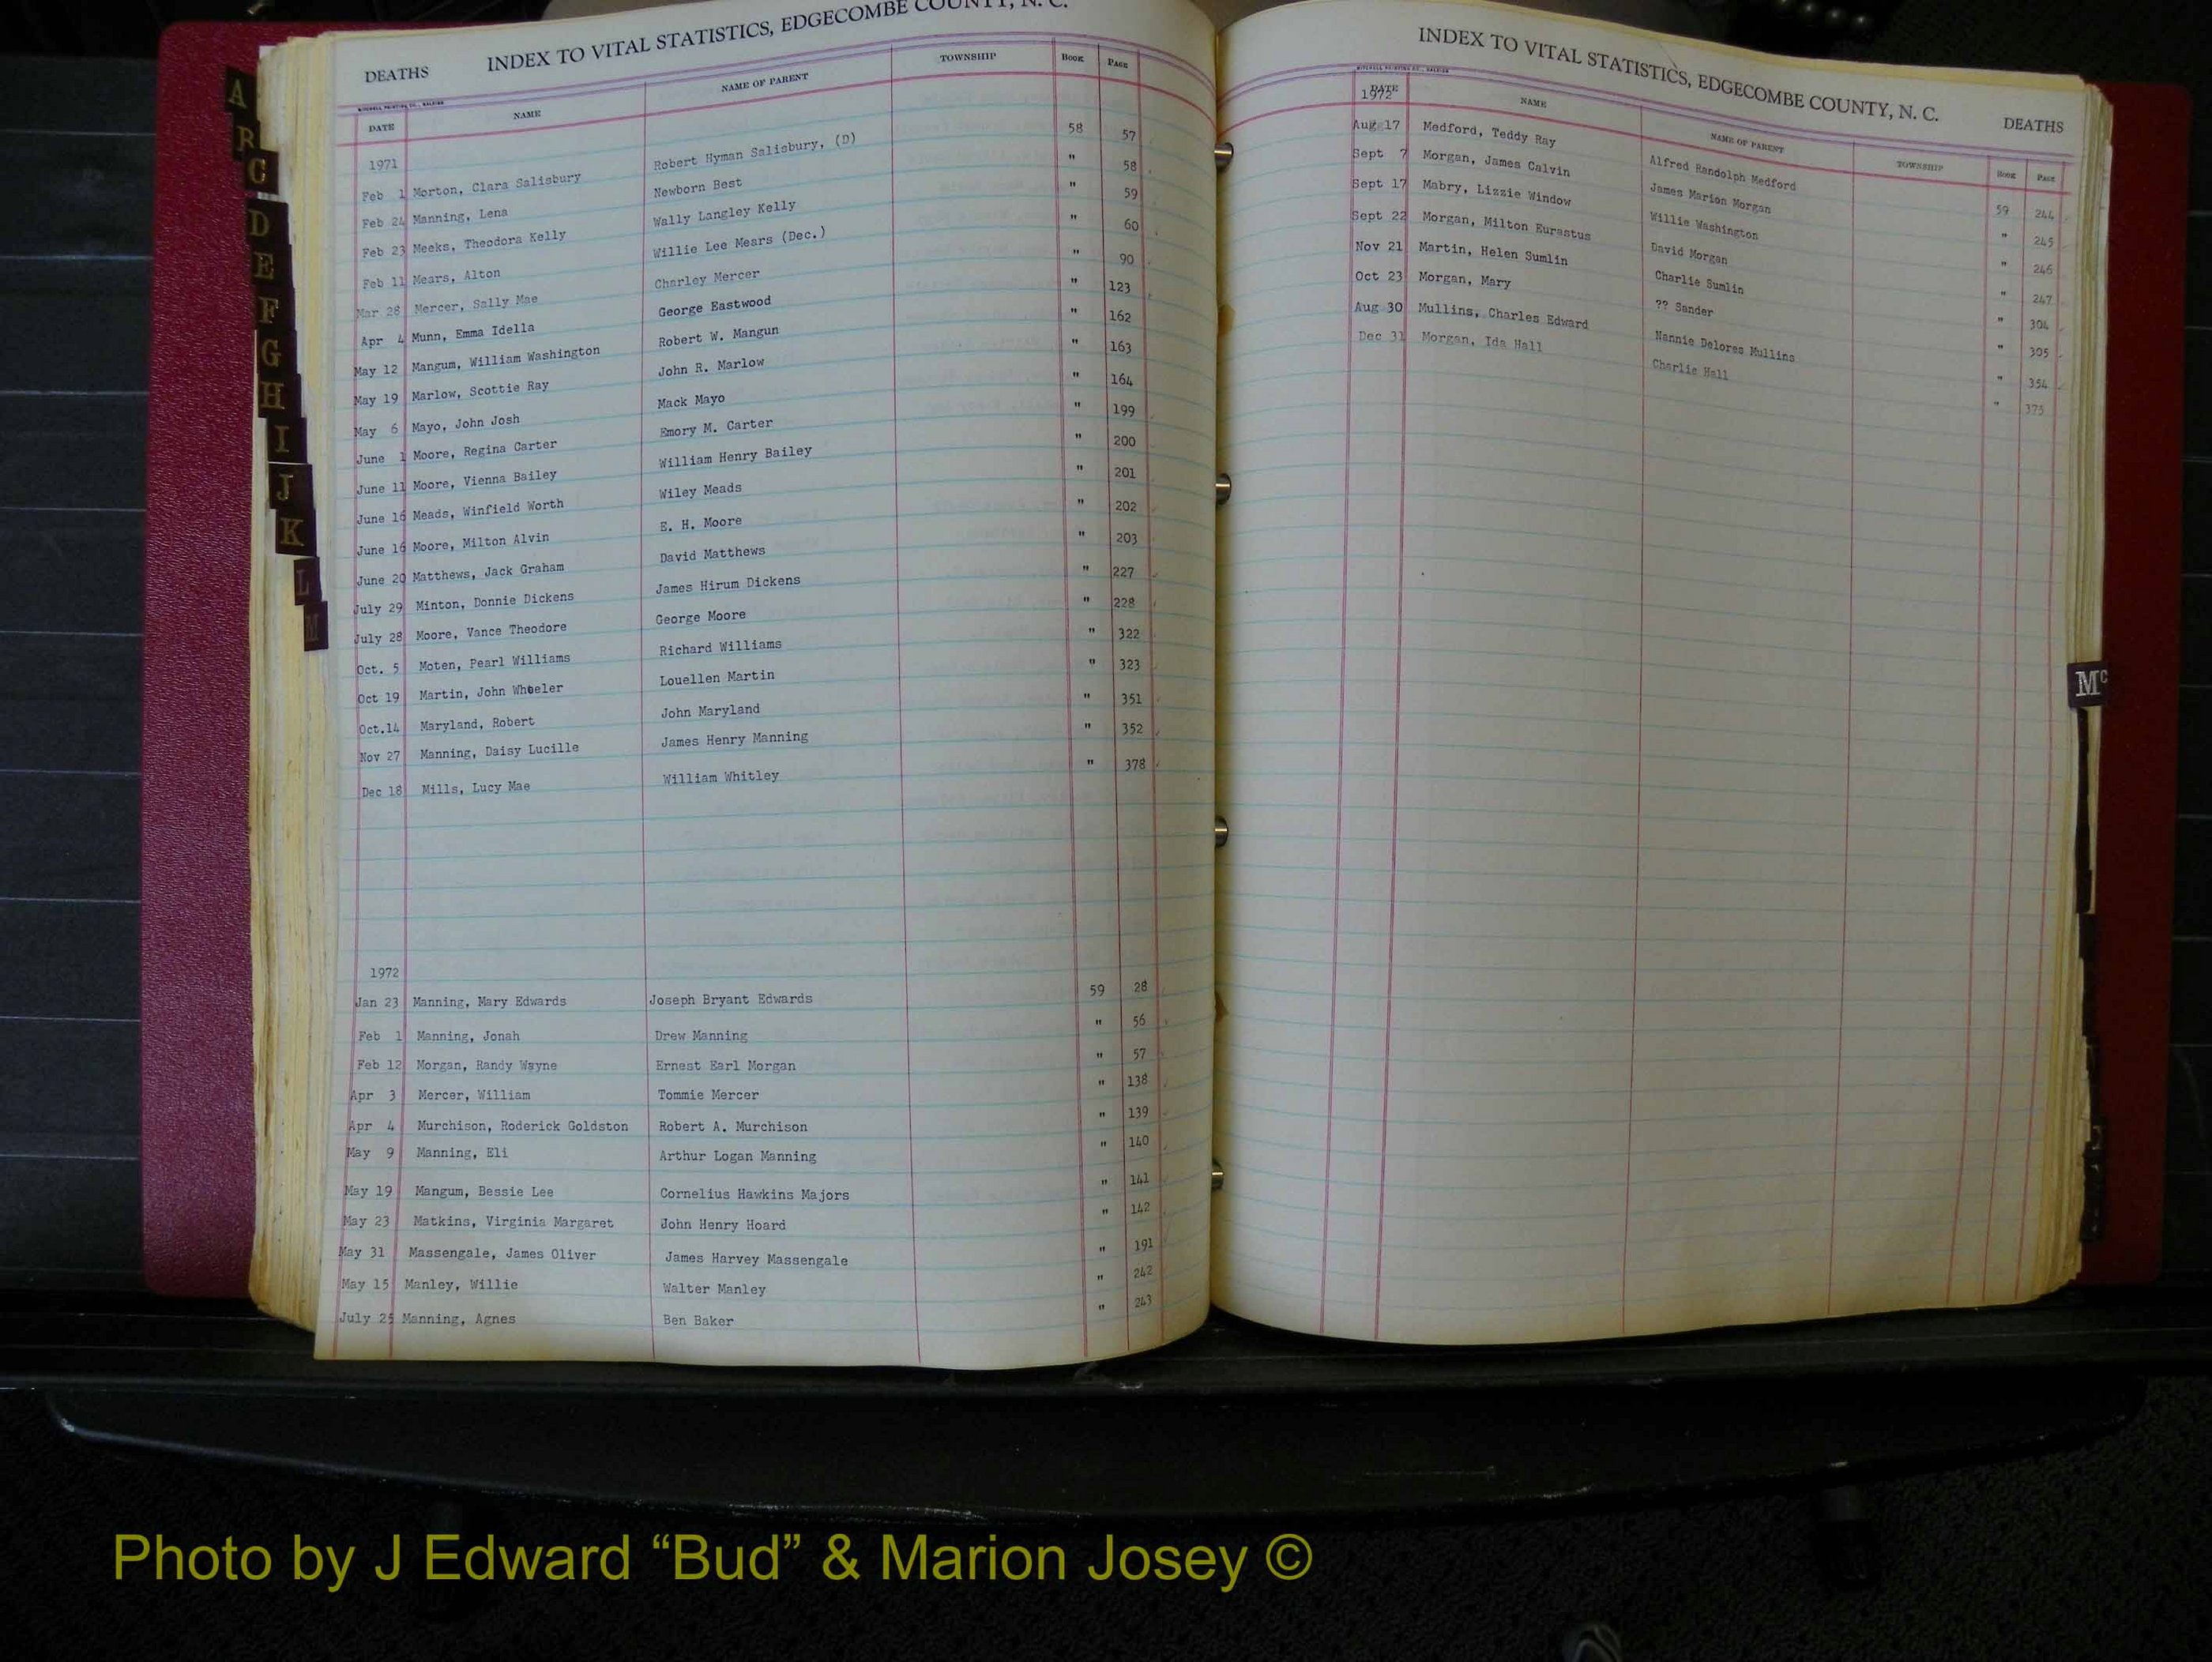 DEATHS INDEX TO VITAL STATISTICS, EDGECOMBE COUNTY, N. C.
MITCHELL PRINTING CO., RALEIGH
DATE NAME NAME OF PARENT TOWNSHIP BOOK PAGE
1971
Feb 1 Morton, Clara Salisbury Robert Hyman Salisbury, (D) 58 57
Feb 24 Manning, Lena Newborn Best " 58
Feb 23 Meeks, Theodora Kelly Wally Langley Kelly " 59
Feb 11 Mears, Alton Willie Lee Mears (Dec.) " 60
Mar 28 Mercer, Sally Mae Charley Mercer " 90
Apr 4 Munn, Emma Idella George Eastwood " 123
May 12 Mangum, William Washington Robert W. Mangun " 162
May 19 Marlow, Scottie Ray John R. Marlow " 163
May 6 Mayo, John Josh Mack Mayo " 164
June 1 Moore, Regina Carter Emory M. Carter " 199
June 11 Moore, Vienna Bailey William Henry Bailey " 200
June 16 Meads, Winfield Worth Wiley Meads " 201
June 16 Moore, Milton Alvin E. H. Moore " 202
June 20 Matthews, Jack Graham David Matthews " 203
July 29 Minton, Donnie Dickens James Hirum Dickens " 227
July 28 Moore, Vance Theodore George Moore " 228
Oct. 5 Moten, Pearl Williams Richard Williams " 322
Oct 19 Martin, John Wheeler Louellen Martin " 323
Oct.14 Maryland, Robert John Maryland " 351
Nov 27 Manning, Daisy Lucille James Henry Manning " 352
Dec 18 Mills, Lucy Mae William Whitley " 378
1972
Jan 23 Manning, Mary Edwards Joseph Bryant Edwards 59 28
Feb 1 Manning, Jonah Drew Manning " 56
Feb 12 Morgan, Randy Wayne Ernest Earl Morgan " 57
Apr 3 Mercer, William Tommie Mercer " 138
Apr 4 Murchison, Roderick Goldston Robert A. Murchison " 139
May 9 Manning, Eli Arthur Logan Manning " 140
May 19 Mangum, Bessie Lee Cornelius Hawkins Majors " 141
May 23 Matkins, Virginia Margaret John Henry Hoard " 142
May 31 Massengale, James Oliver James Harvey Massengale " 191
May 15 Manley, Willie Walter Manley " 242
July 25 Manning, Agnes Ben Baker " 243
INDEX TO VITAL STATISTICS, EDGECOMBE COUNTY, N. C. DEATHS
MITCHELL PRINTING CO., RALEIGH
DATE NAME NAME OF PARENT TOWNSHIP BOOK PAGE
1972
Aug 17 Medford, Teddy Ray Alfred Randolph Medford 59 244
Sept 7 Morgan, James Calvin James Marion Morgan " 245
Sept 17 Mabry, Lizzie Window Willie Washington " 246
Sept 22 Morgan, Milton Eurastus David Morgan " 247
Nov 21 Martin, Helen Sumlin Charlie Sumlin " 304
Oct 23 Morgan, Mary ?? Sander " 305
Aug 30 Mullins, Charles Edward Nannie Delores Mullins " 354
Dec 31 Morgan, Ida Hall Charlie Hall " 375
A
B
C
D
E
F
G
H
I
J
K
L
M
Mc
Photo by J Edward “Bud” & Marion Josey ©